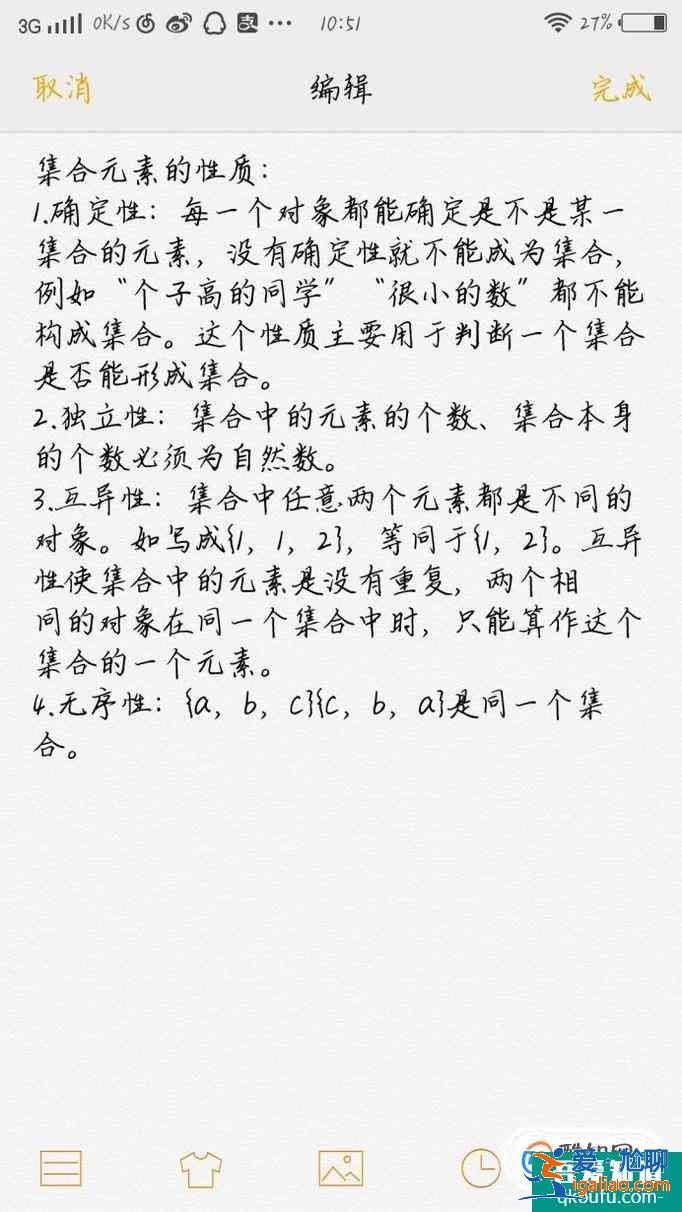 3G 0K/s 10:51 27%
取消 编辑 完成
集合元素的性质：
1.确定性：每一个对象都能确定是不是某一
集合的元素，没有确定性就不能成为集合，
例如“个子高的同学”“很小的数”都不能
构成集合。这个性质主要用于判断一个集合
是否能形成集合。
2.独立性：集合中的元素的个数、集合本身
的个数必须为自然数。
3.互异性：集合中任意两个元素都是不同的
对象。如写成{1，1，2}，等同于{1，2}。互异
性使集合中的元素是没有重复，两个相
同的对象在同一个集合中时，只能算作这个
集合的一个元素。
4.无序性：{a，b，c}{c，b，a}是同一个集
合。
爱尬聊
igaliao.com